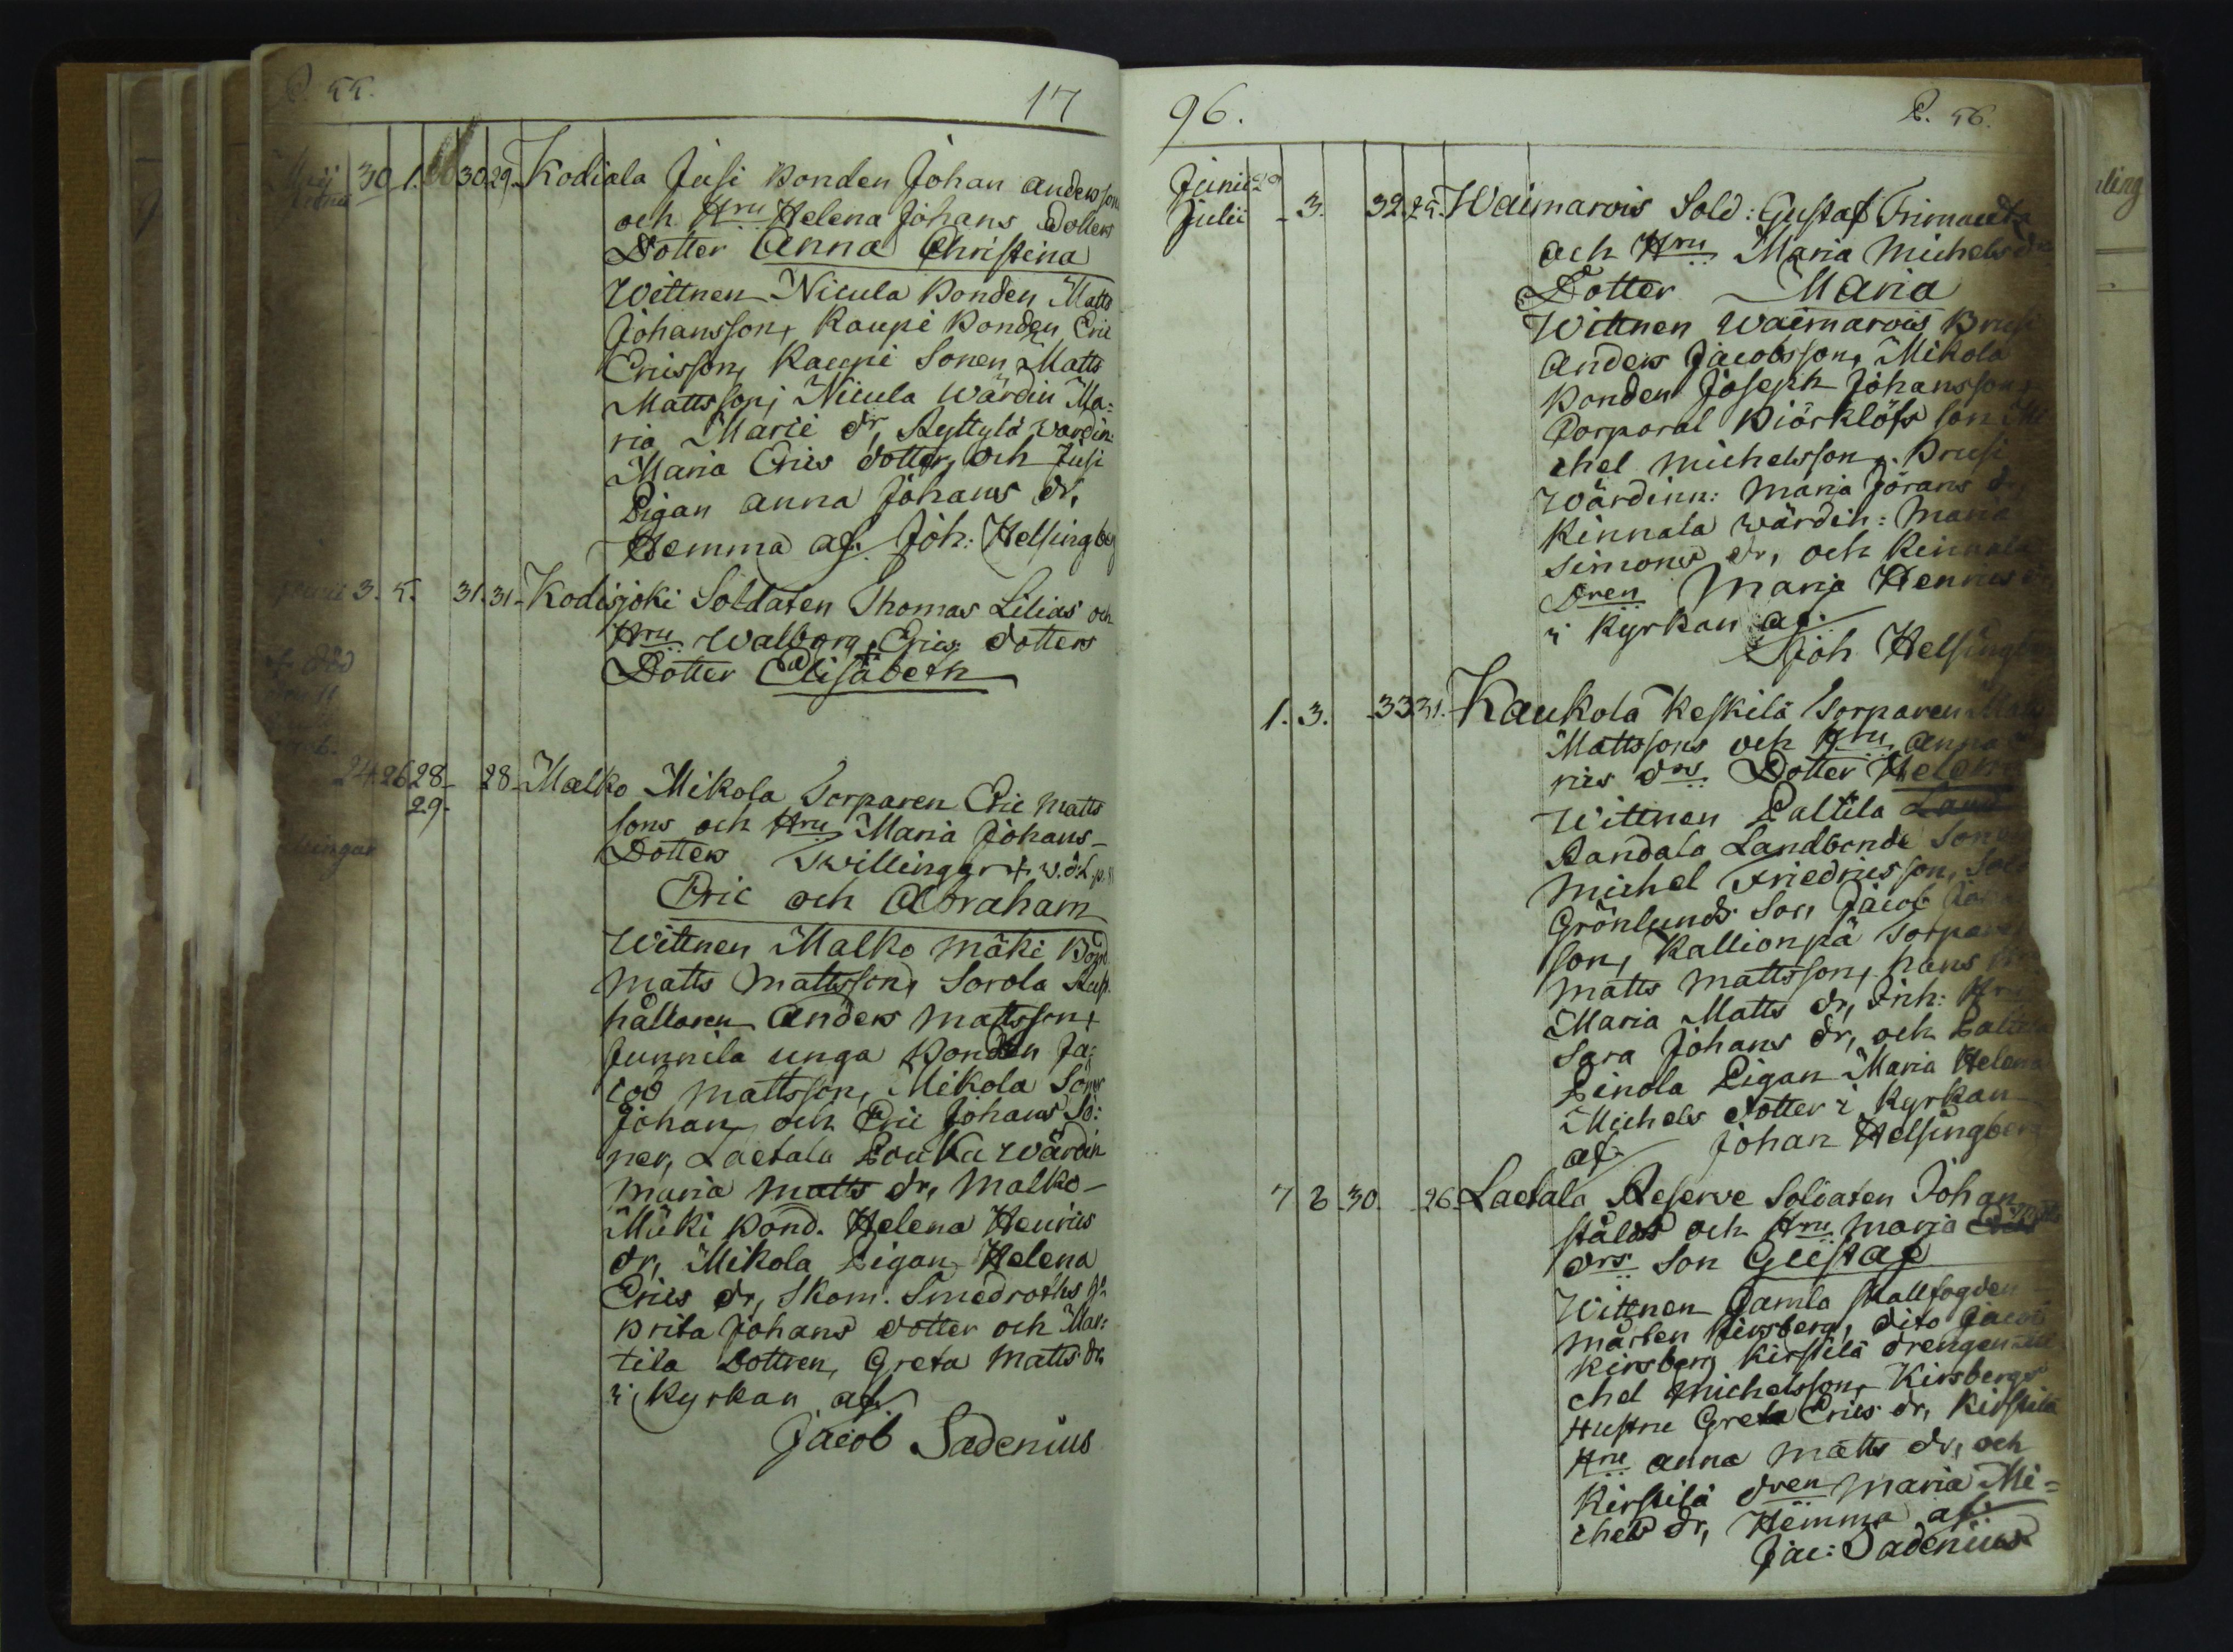 P. 55.
17
Maij 30 1. 30 29. Kodiala Jusi Bonden Johan Andersson
och Hru Helena Johans Dotters
Dotter Anna Christina
Wittnen Nicula Bonden Matts
Johansson, Kaupi Bonden Eric
Ericsson, Kaupi Sonen Matts
Mattsson; Nicula Wärdin Ma:
ria Marci dr, Ryttylä wärdin:
Maria Erics dotter, och Jusi
Pigan Anna Johans dr,
Hemma af. Joh: Helsingberg
Junii 3. 5. 31. 31. Kodisjoki Soldaten Thomas Lilias och
Hru Walborg Erics dotters
Dotter Elisabeth
död
24. 26 28 28. Malko Mikola Torparen Eric Matts
29.
sons och Hru Maria Johans
Dotters Twillingar
Eric och Abraham
Wittnen Malko Mäki Bond.
Matts Mattsson, Sorola Rust
hållaren Anders Mattsson,
Junnila unga Bonden Ja:
cob Mattsson, Mikola Soner
Johan och Eric Johans Sö:
ner, Laetala Pouku Wärdin
Maria Matts dr, Malko
Mäki Bond. Helena Henrics
dr, Mikola Pigan Helena
Erics dr, Skom. Smedroths
Brita Johans dotter och Mar:
tila Dottren, Greta Matts dr,
i Kyrkan af.
Jacob Sadenius
96.
P. 56.
Junii 29
Julii 3. 32. 25. Waimarois Sold: Gustaf Frimanta
och Hru Maria Michels drs
Dotter Maria
Wittnen Waimarois Brusi
Anders Jacobsson, Mikola
Bonden Joseph Johansson,
Corporal Biörklöfs son Mi
chel Michelsson, Brusi
Wärdinn: Maria Jörans dr,
Kinnala wärdin: Maria
Simons dr, och Kinnala
Dren Maria Henrics dr,
i Kyrkan af.
Joh Helsingberg
1. 3. 33 31. Kaukola Keskilä Torparen Matts
Mattssons och Hru Anna
rics drs Dotter Helena
Wittnen Paltila
Randala Landbonde Son
Michel Friedricsson, Sold
Grönlunds Son Jacob
son, Kallionpä Torparen
Matts Mattsson, hans
Maria Matts dr, Inh: Hru
Sara Johans dr, och Paltila
Pinola Pigan Maria Helena
Michels dotter i Kyrkan
af. Johan Helsingberg
7 8 30. 26. Laetala Reserve Soldaten Johan
Stålas och Hru Maria
drs Son Gustaf
Wittnen Gamla Skallfogden
Mårten Kirsberg, dito Jacob
Kirsberg Kirstilä drengen Mi
chel Michelsson, Kirsbergs
Hustru Greta Erics dr, Kirstilä
Hru Anna Matts dr, och
Kirstilä dren Maria Mi=
chels dr, Hemma af.
Jac: Sadenius